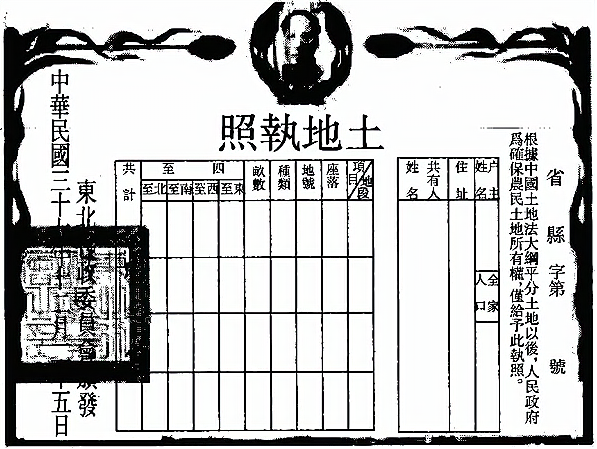 土地執照
省 縣 字第 號
根據中國土地法大綱平分土地以後,人民政府
爲確保農民土地所有權,僅給予此執照。
户主姓名
全家人口
住址
共有人姓名
地段
項目
座落
地號
種類
畝數
四至
東至
西至
南至
北至
共計
東北 政委員會頒發
中華民國三十 年十 月 十五日